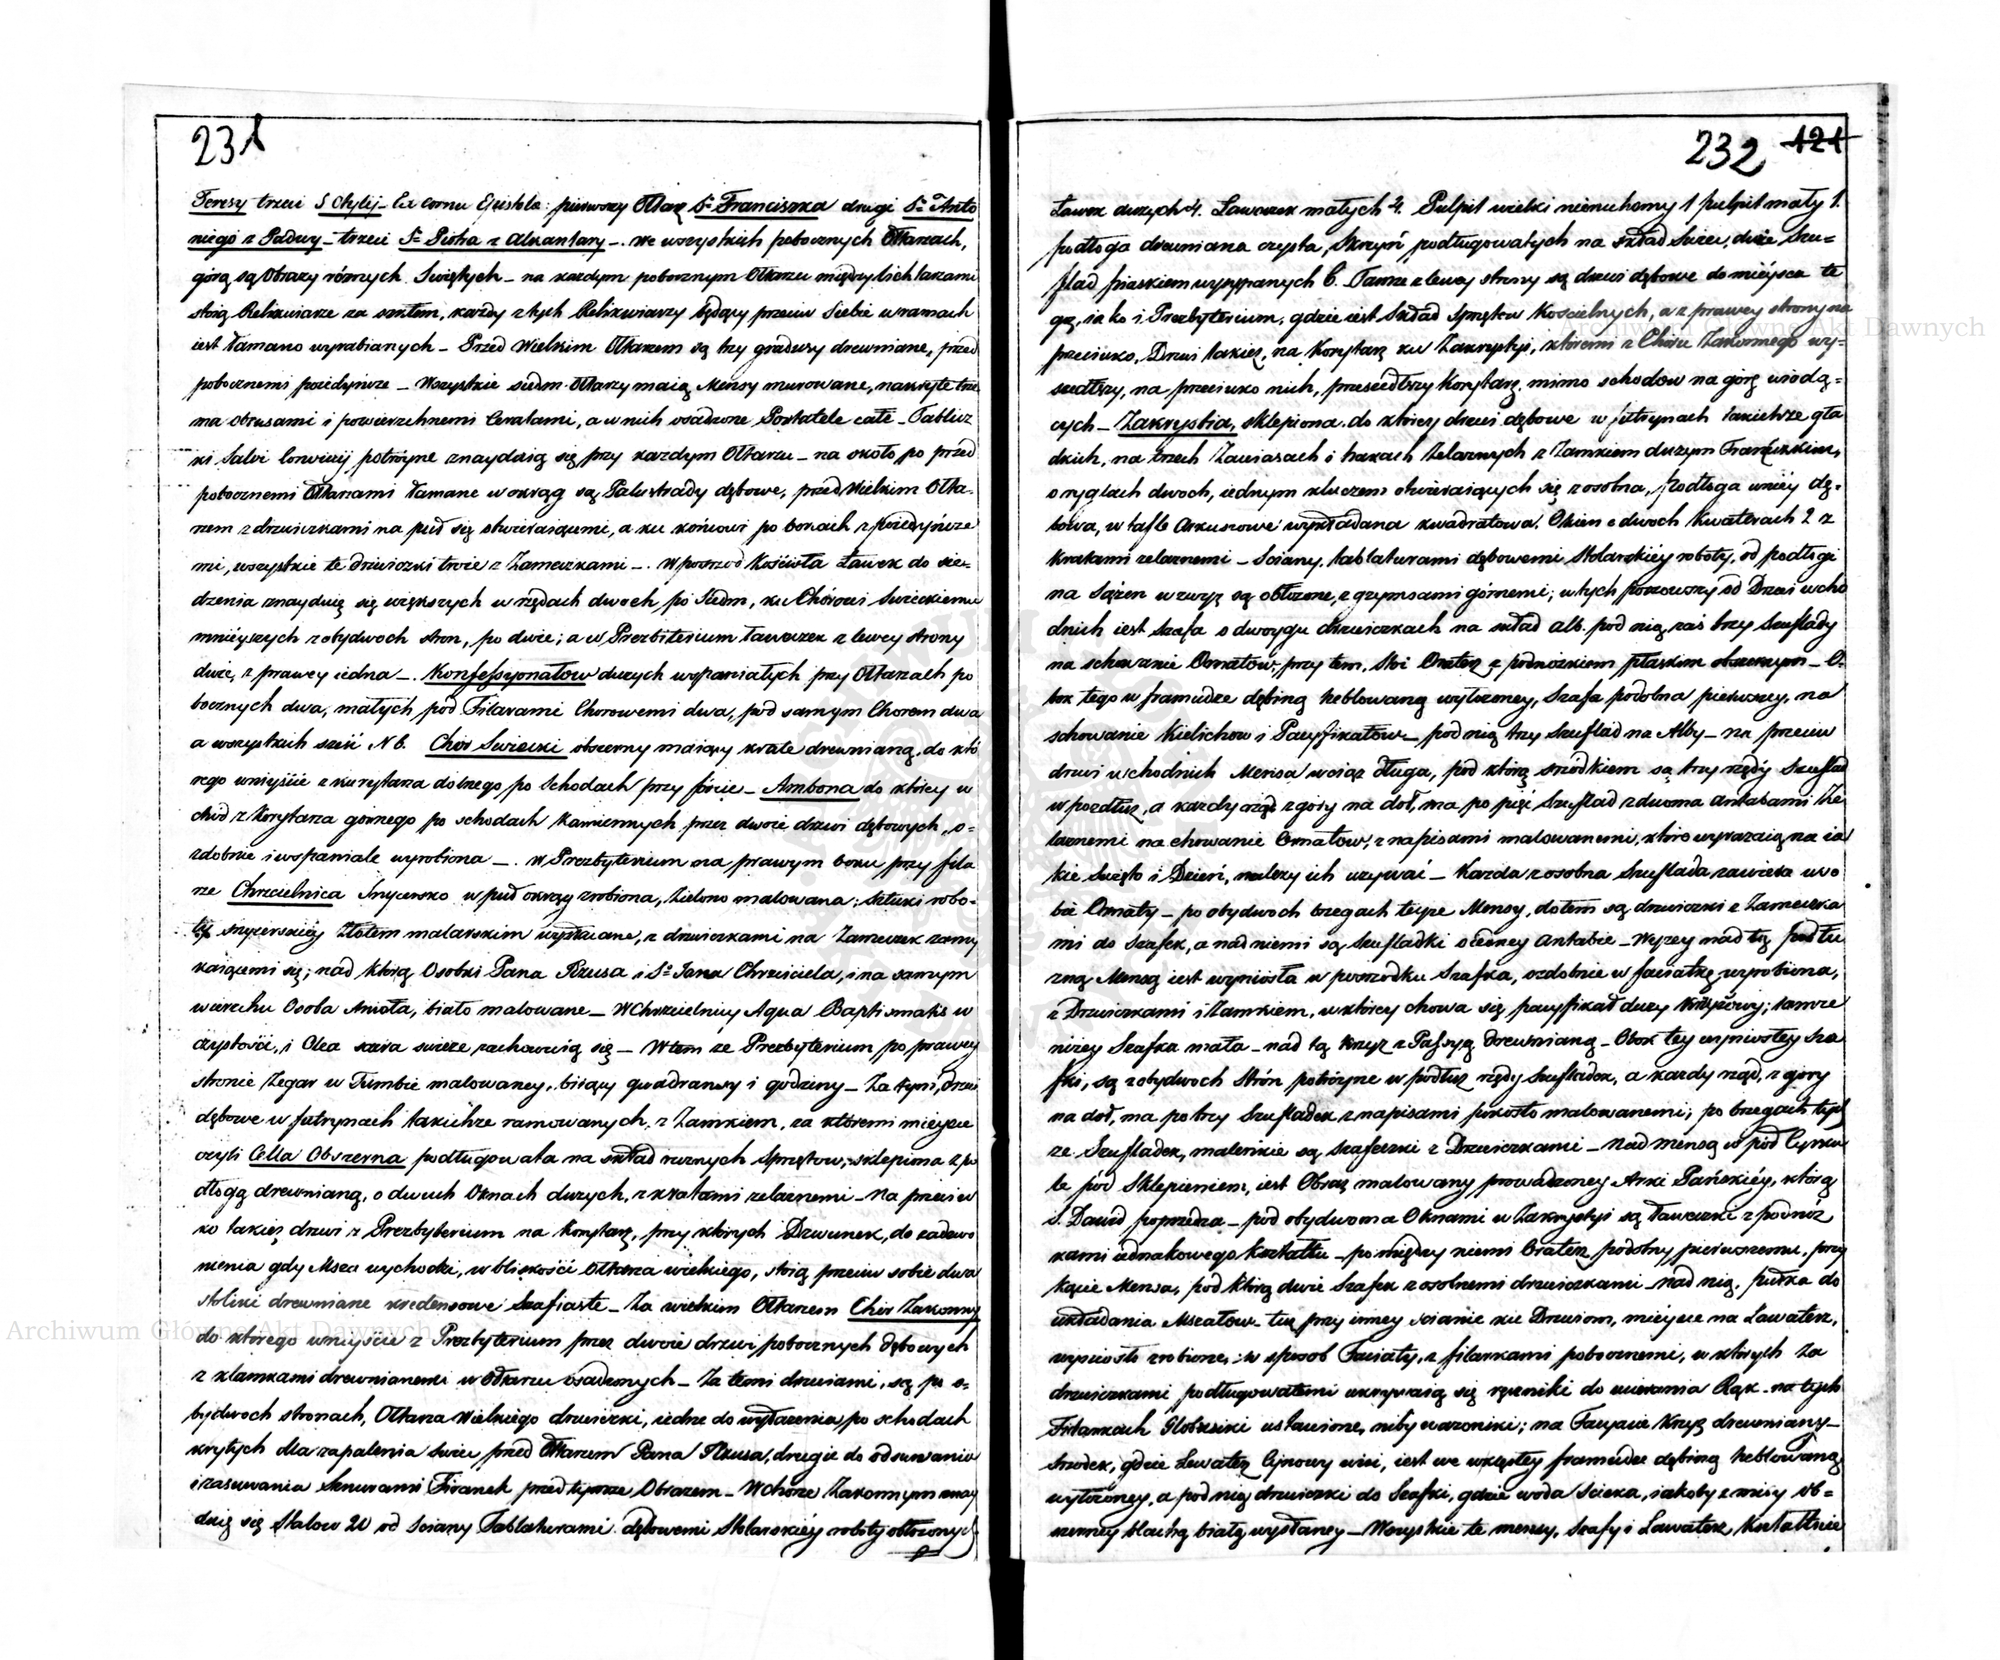 231
Teresy trzeci S Otylij – Ex cornu Epistolæ: pierwszy Ołtarz Sº Franciszka drugi Sº Anto
niego z Padwy – trzeci Sº Piotra z Alkantary –. We wszystkich pobocznych Ołtarzach,
górą są Obrazy różnych Swiętych – na każdym pobocznym Ołtarzu między lichtarzami
stoią Relikwiarze za szkłem, każdy z tych Relikwiarzy będący przeciw Siebie w ramach
iest łamano wyrabianych – Przed Wielkim Ołtarzem są trzy gradusy drewniane, przed
pobocznemi poiedyńcze – Wszystkie siedm Ołtarzy maią Mensy murowane, nakryte trze
ma obrusami i powierzchnemi Ceratami, a w nich osadzone Portatele całe – Tablicz
ki Salvi lorwicij potróyne znayduią się przy każdym Ołtarzu – na około po przed
pobocznemi Ołtarzami łamane w okrąg są Balustrady dębowe, przed Wielkim Ołta-
rzem z drzwiczkami na puł się otwieraiącemi, a ku końcowi po bokach z poiedyńcze
mi, wszystkie te drzwiczki troie z Zameczkami –. W pośrzód Kościoła Ławek do sie-
dzenia znayduię się większych w rzędach dwoch po Siedm, ku Chórowi Swieckiemu
mnieyszych z obydwoch stron, po dwie; a w Prezbiterium ławeczek z lewey strony
dwie, z prawey iedna –. Konfessyonałow dużych wspaniałych przy Ołtarzach po
bocznych dwa, małych pod Filarami Chorowemi dwa, pod samym Chorem dwa
a wszystkich sześć N 6. Chór Swiecki obszerny maiący kratę drewnianą, do któ
rego wniyście z kurytarza dolnego po Schodach przy furcie – Ambona do ktorey w
chód z Korytarza gornego po schodach kamiennych przez dwoie drzwi dębowych „o-
zdobnie i wspaniale wyrobiona –. W Prezbyterium na prawym boku przy fila
rze Chrzcielnica Snycersko w puł okrąg zrobiona, Zielono malowana; sztuki robo-
ty snycerskiéy Złotem malarskim wyzłacane, z drzwiczkami na Zameczek zamy
kaiącemi się; nad ktorą Osobki Pana Jezusa i Sº Jana Chrzciciela, i na samym
wierzchu Osoba Anioła, biało malowane – W Chrzcielnicy Aqua Baptismatis w
czystości, i Olea sacra swieże zachowuią się – W tem że Prezbyterium po prawey
stronie Zegar w Tumbie malowaney, biiący quadransy i godziny – Za tym, drzwi
dębowe w futrynach takichże ramowanych, z Zamkiem, za ktoremi mieysce
czyli Cella Obszerna podługowata na skład rożnych Sprzętow, sklepiona z po
dłogą drewnianą, o dwuch Oknach dużych, z kratami żelaznemi – Na przeciw
ko takież drzwi z Prezbyterium na Korytarz, przy których Dzwonek, do zadzwo
nienia gdy Msza wychodzi, w bliskości Ołtarza wielkiego, stoią przeciw sobie dwa
stoliki drewniane kredensowe Szafiaste – Za wielkim Ołtarzem Chór Zakonny
do ktorego wniyście z Prezbyterium przez dwoie drzwi pobocznych dębowych
z klamkami drewnianemi w Ołtarzu osadzonych – Za temi drzwiami, są po o-
bydwoch stronach, Ołtarza Wielkiego drzwiczki, iedne do wyłażenia po schodach
krytych dla zapalenia świec przed Ołtarzem Pana Jezusa, drugie do odsuwania
i zasuwania Sznurami Firanek przed tymże Obrazem – W Chórze Zakonnym znay
duię się Stalow 20 od Sciany Tablaturami dębowemi Stolarskiéy roboty obłożonych
232 121
Ławek dużych 4. Ławeczek małych 4. Pulpit wielki nieruchomy 1 pulpit mały 1.
podłoga drewniana czysta, Skrzyń podługowatych na skład Swiec, dwie szu-
flad piaskiem wysypanych 6. Tamże z lewey strony są drzwi dębowe do mieysca te
go, iako i Prezbyterium, gdzie iest Skład Sprzętu Kościelnych, a z prawey strony na
przeciwko, Drzwi takież, na Korytarz ku Zakrystyi, ktoremi z Chóru Zakonnego wy-
szedłszy, na przeciwko nich, przeszedłszy Korytarz, mimo schodow na górę wiodą-
cych – Zakrystia, sklepiona, do ktorey drzwi dębowe w futrynach takichże gła
dkich, na trzech Zawiasach i hakach Zelaznych z Zamkiem dużym Francuzkim,
o ryglach dwoch, iednym kluczem otwieraiących się z osobna, Podłoga w niéy dę-
bowa, w tafle Arkuszowe wykładana kwadratowa. Okien o dwoch Kwaterach 2 z
kratami żelaznemi – Sciany, tablaturami dębowemi Stolarskiéy roboty, od podłogi
na Sążen wzwyż są obłożone, z gzymsami górnemi; w tych począwszy od Drzwi wcho
dnich iest Szafa o dwoygu drzwiczkach na skład alb. pod nią zaś trzy Szuflady
na schowanie Ornatów, przy tem, Stoi Oratorz z podnóżkiem płaskim obszernym – O-
bok tego w framudze dębiną heblowaną wyłożoney, Szafa podobna pierwszey, na
schowanie Kielichow i Pacyfikałow – pod nią trzy Szuflad na Alby – na przeciw
drzwi wchodnich Mensa wciąż długa, pod którą srzódkiem są trzy rzędy Szuflad
w podłuż, a każdy rząd z góry na doł, ma po pięć Szuflad z dwoma antabami Że
laznemi na chowanie Ornatow, z napisami malowanemi, które wyrażaią na ia
kie Swięto i Dzień, należy ich używać – Każda z osobna Szuflada zawiera w so
bie Ornaty – po obydwoch brzegach teyże Mensy, dołem są drzwiczki z Zameczka
mi do Szafek, a nad niemi są Szufladki o iedney Antabie – Wyżey nad tą podłu
żną Mensą iest wyniosła w poszrodku Szafka, ozdobnie w faciatkę wyrobiona,
z Drzwiczkami i Zamkiem, w ktorey chowa się pacyfikał duży Krzyżowy; tamże
niżey Szafka mała – nad tą Krzyż z Passyą drewnianą – Obok tey wyniosłey Sza
fki, są z obydwoch Strón potróyne w podłuż rzędy Szufladek, a każdy rząd, z góry
na doł, ma po trzy Szufladek z napisami prosto malowanemi; po brzegach tych
że Szufladek, maleńkie są szafeczki z Drzwiczkami – Nad mensą w pół Cyrku
le pód Sklepieniem, iest Obraz malowany prowadzoney Arki Pańskiéy, ktorą
S. Dawid poprzedza – pod obydwoma Oknami w Zakrystyi są ławeczki z podnóż
kami iednakowego kształtu – pomiędzy niemi Oratorz, podobny pierwszemu, przy
kącie Mensa, pod którą dwie Szafek z osobnemi drzwiczkami nad nią, pułka do
układania Mszałow – tuż przy inney scianie ku Drzwiom, mieysce na Lawaterz,
wyniosto zrobione, w sposob Faciaty, z filarkami pobocznemi, w których Za
drzwiczkami podługowatemi ukrywaią się ręczniki do ucierania Rąk – na tych
Filarkach Globusiki ustawione, niby wazoniki; na Facyacie Krzyż drewniany –
Srzodek, gdzie Lawaterz Cynowy wisi, iest we wklęsłey framudze dębiną heblowaną
wyłożoney, a pod nią drzwiczki do Szafki, gdzie woda Scieka, iakoby z misy Ob-
szerney blachą białą wysłaney – Wszystkie te mensy, Szafy i Lawaterz, kształtnie